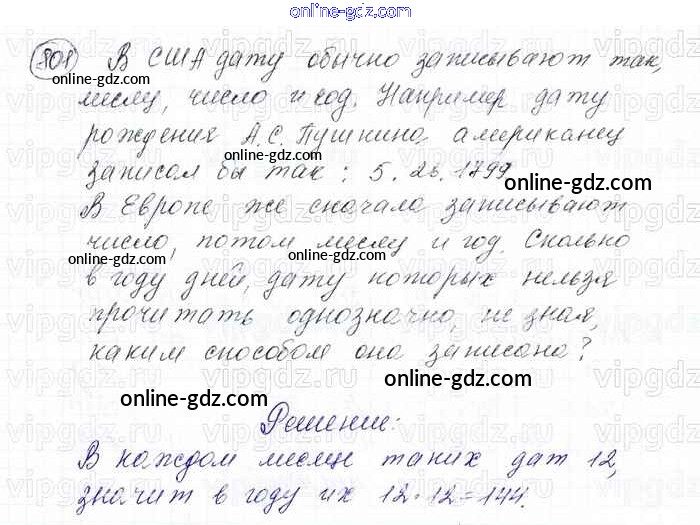 online-gdz.com
801 В США дату обычно записывают так,
месяц, число и год. Например дату
online-gdz.com
рождения А.С. Пушкина американец
online-gdz.com
записал бы так: 5. 26. 1799.
online-gdz.com
В Европе же сначала записывают
число, потом месяц и год. Сколько
online-gdz.com
в году дней, дату которых нельзя
прочитать однозначно, не зная,
каким способом она записана?
online-gdz.com
online-gdz.com
Решение:
В каждом месяце таких дат 12,
значит в году их 12·12=144.
online-gdz.com